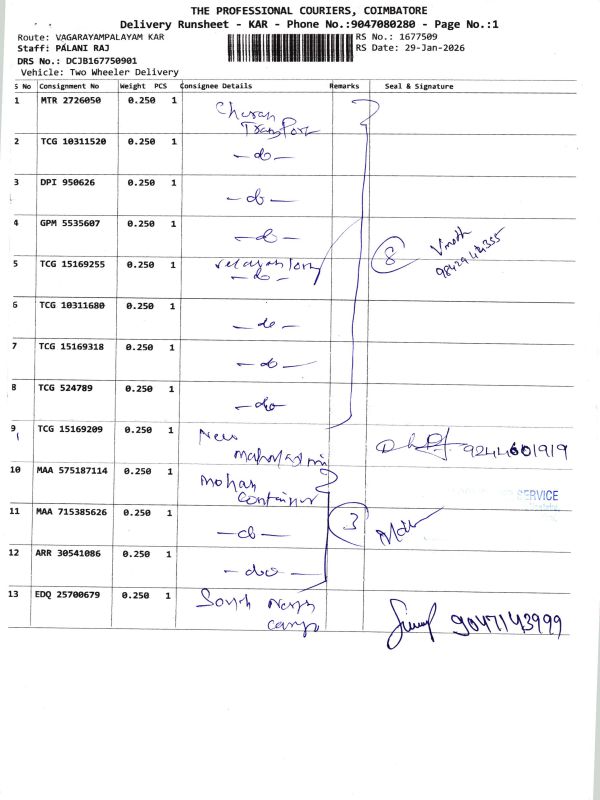 THE PROFESSIONAL COURIERS, COIMBATORE
Delivery Runsheet - KAR - Phone No.:9047080280 - Page No.:1
Route: VAGARAYAMPALAYAM KAR
RS No.: 1677509
Staff: PALANI RAJ
RS Date: 29-Jan-2026
DRS No.: DCJB167750901
Vehicle: Two Wheeler Delivery
S No Consignment No Weight PCS Consignee Details Remarks Seal & Signature
1 MTR 2726050 0.250 1 Charan Transport
2 TCG 10311520 0.250 1 -do-
3 DPI 950626 0.250 1 -do-
4 GPM 5535607 0.250 1 -do-
8 Vinoth
5 TCG 15169255 0.250 1 -do-
6 TCG 10311680 0.250 1 -do-
7 TCG 15169318 0.250 1 -do-
8 TCG 524789 0.250 1 -do-
9 TCG 15169209 0.250 1 New 9244601919
10 MAA 575187114 0.250 1 Mohan Container
SERVICE
11 MAA 715385626 0.250 1 -do- 3
12 ARR 30541086 0.250 1 -do-
13 EDQ 25700679 0.250 1 South cargo 9047143999